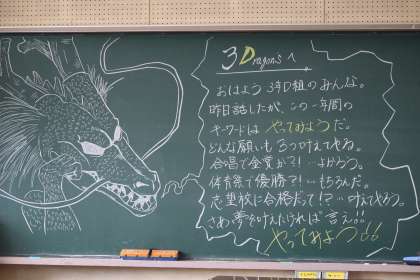 3Dragonsへ
おはよう 3年D組のみんな。
昨日話したが、この一年間の
キーワードは やってみようだ。
どんな願いも 3つ叶えてやろう。
合唱で金賞か?! …よかろう。
体育祭で優勝?! …もちろんだ。
志望校に合格だって!? …叶えてやろう。
さあ、夢を叶えたければ 言え!!
やってみよう!!